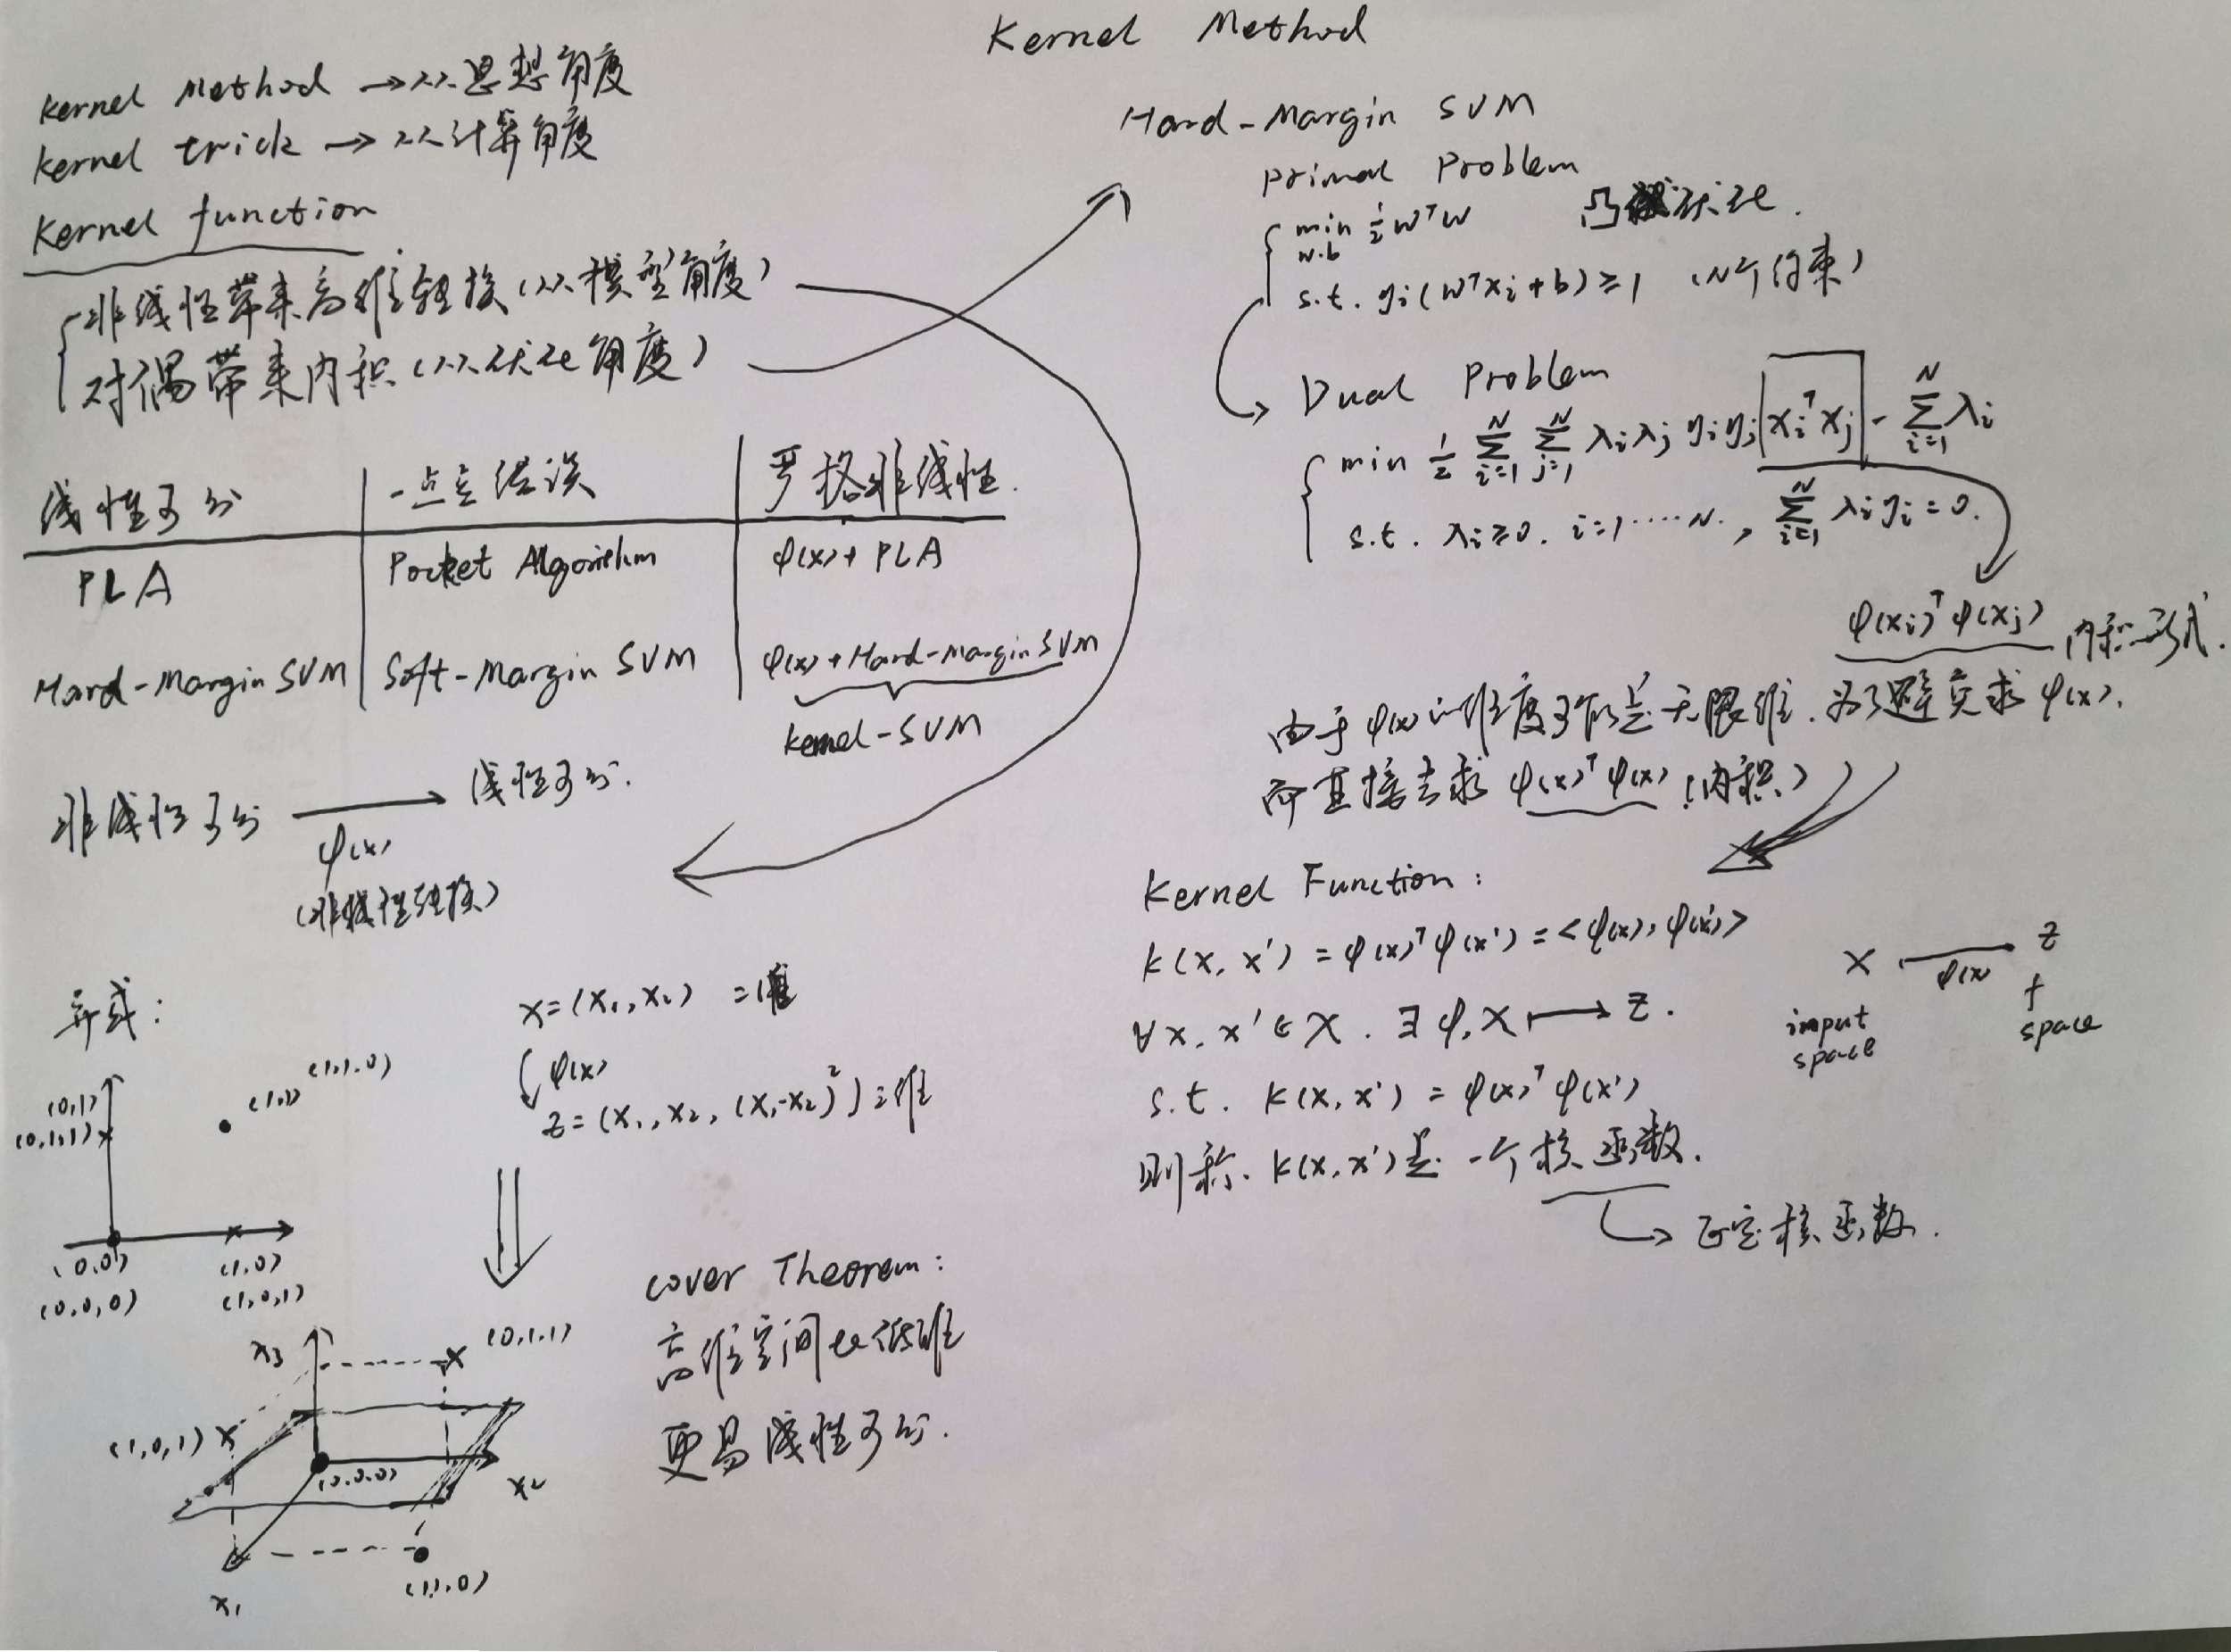 Kernel Method
Kernel Method → 从思想角度
Kernel trick → 从计算角度
Kernel function
非线性带来高维转换(从模型角度)
对偶带来内积(从优化角度)
线性可分 | 一点点错误 | 严格非线性.
PLA | Pocket Algorithm | φ(x)+PLA
Hard-Margin SVM | Soft-Margin SVM | φ(x)+Hard-Margin SVM
Kernel-SVM
非线性可分 → 线性可分.
φ(x)
(非线性转换)
异或:
x=(x₁,x₂) 二维
φ(x)
z=(x₁,x₂,(x₁-x₂)²) 三维
(1,1,0)
(0,1)
(1,1)
(0,1,1)
(0,0)
(1,0)
(0,0,0)
(1,0,1)
x₃
(0,1,1)
(1,0,1)
(0,0,0)
x₂
(1,1,0)
x₁
Cover Theorem:
高维空间比低维
更易线性可分.
Hard-Margin SVM
Primal Problem
凸优化.
min ½ wᵀw
w.b
s.t. yi(wᵀxi+b)≥1 (N个约束)
Dual Problem
min ½ Σ_{i=1}^N Σ_{j=1}^N λiλj yiyj xiᵀxj - Σ_{i=1}^N λi
s.t. λi≥0. i=1·····N., Σ_{i=1}^N λiyi=0.
φ(xi)ᵀφ(xj) 内积形式.
由于φ(x)的维度可能是无限维.为了避免求φ(x).
而直接去求 φ(x)ᵀφ(x') (内积)
Kernel Function:
K(x,x') = φ(x)ᵀφ(x') = <φ(x), φ(x')>
∀x, x'∈X. ∃φ, X ↦ z.
s.t. K(x,x') = φ(x)ᵀφ(x')
则称. K(x,x')是一个核函数.
正定核函数.
X → z
φ(x)
input
space
space